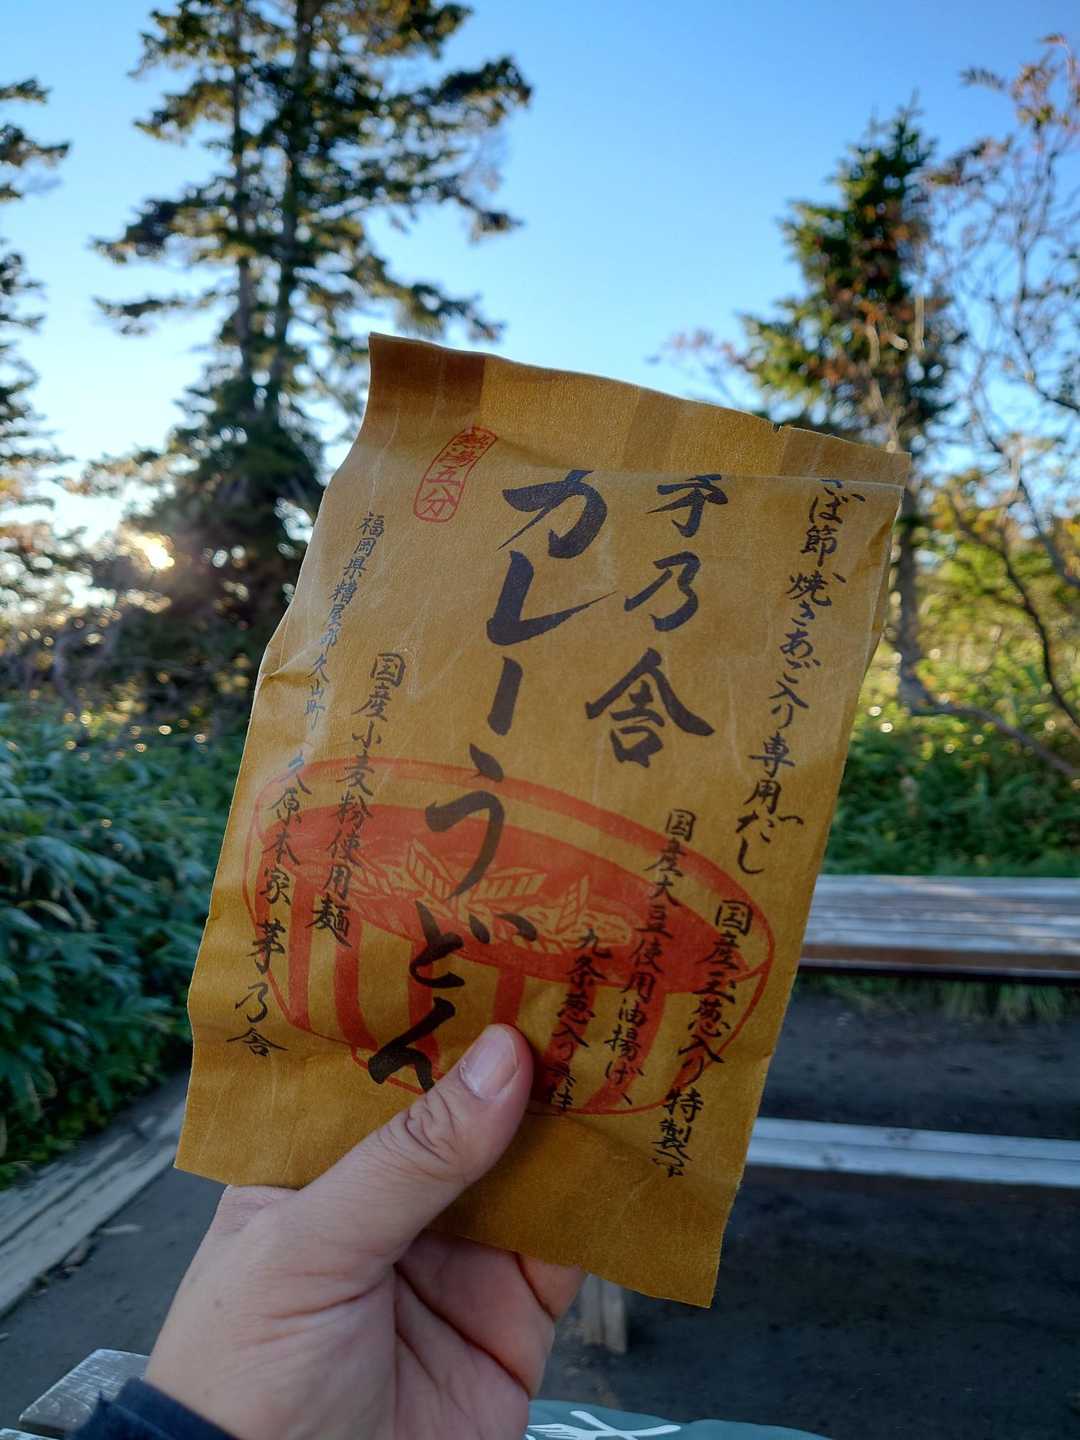 さば節、焼きあご入り専用だし
国産玉葱入り特製
国産大豆使用油揚げ、
九条葱入り具材
茅乃舎
カレーうどん
国産小麦粉使用麺
熱湯五分
福岡県糟屋郡久山町
久原本家 茅乃舎